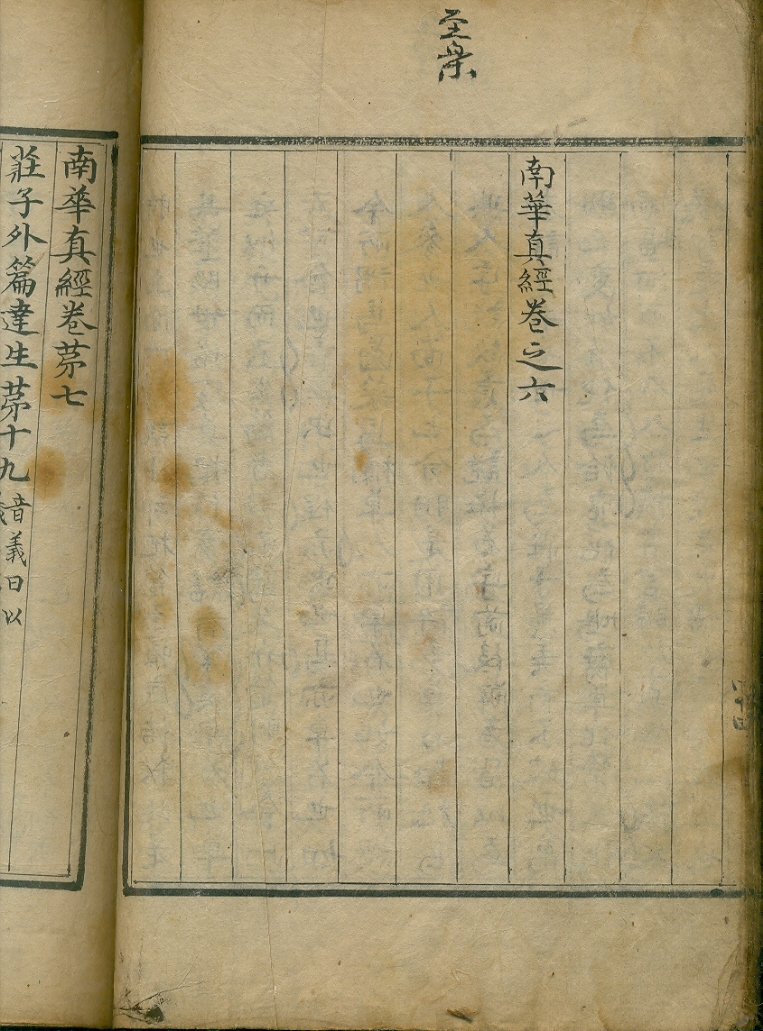 至樂
南華真經卷之六
四十四
南華真經卷苐七
莊子外篇達生苐十九 音義曰以